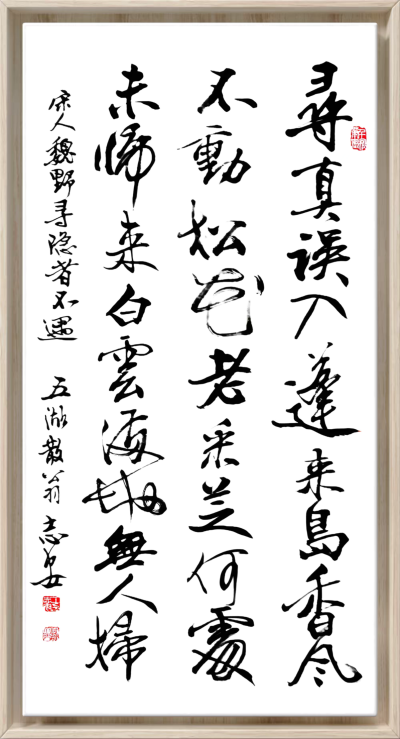 尋真誤入蓬来島香風
不動松花老采芝何處
未歸来白雲滿地無人掃
宋人魏野尋隐者不遇 五湖散翁志